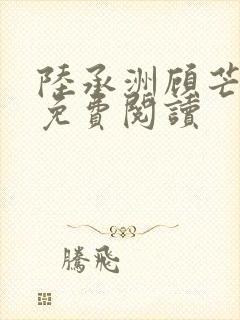 陸承洲顾芒
免費閱讀
騰飛